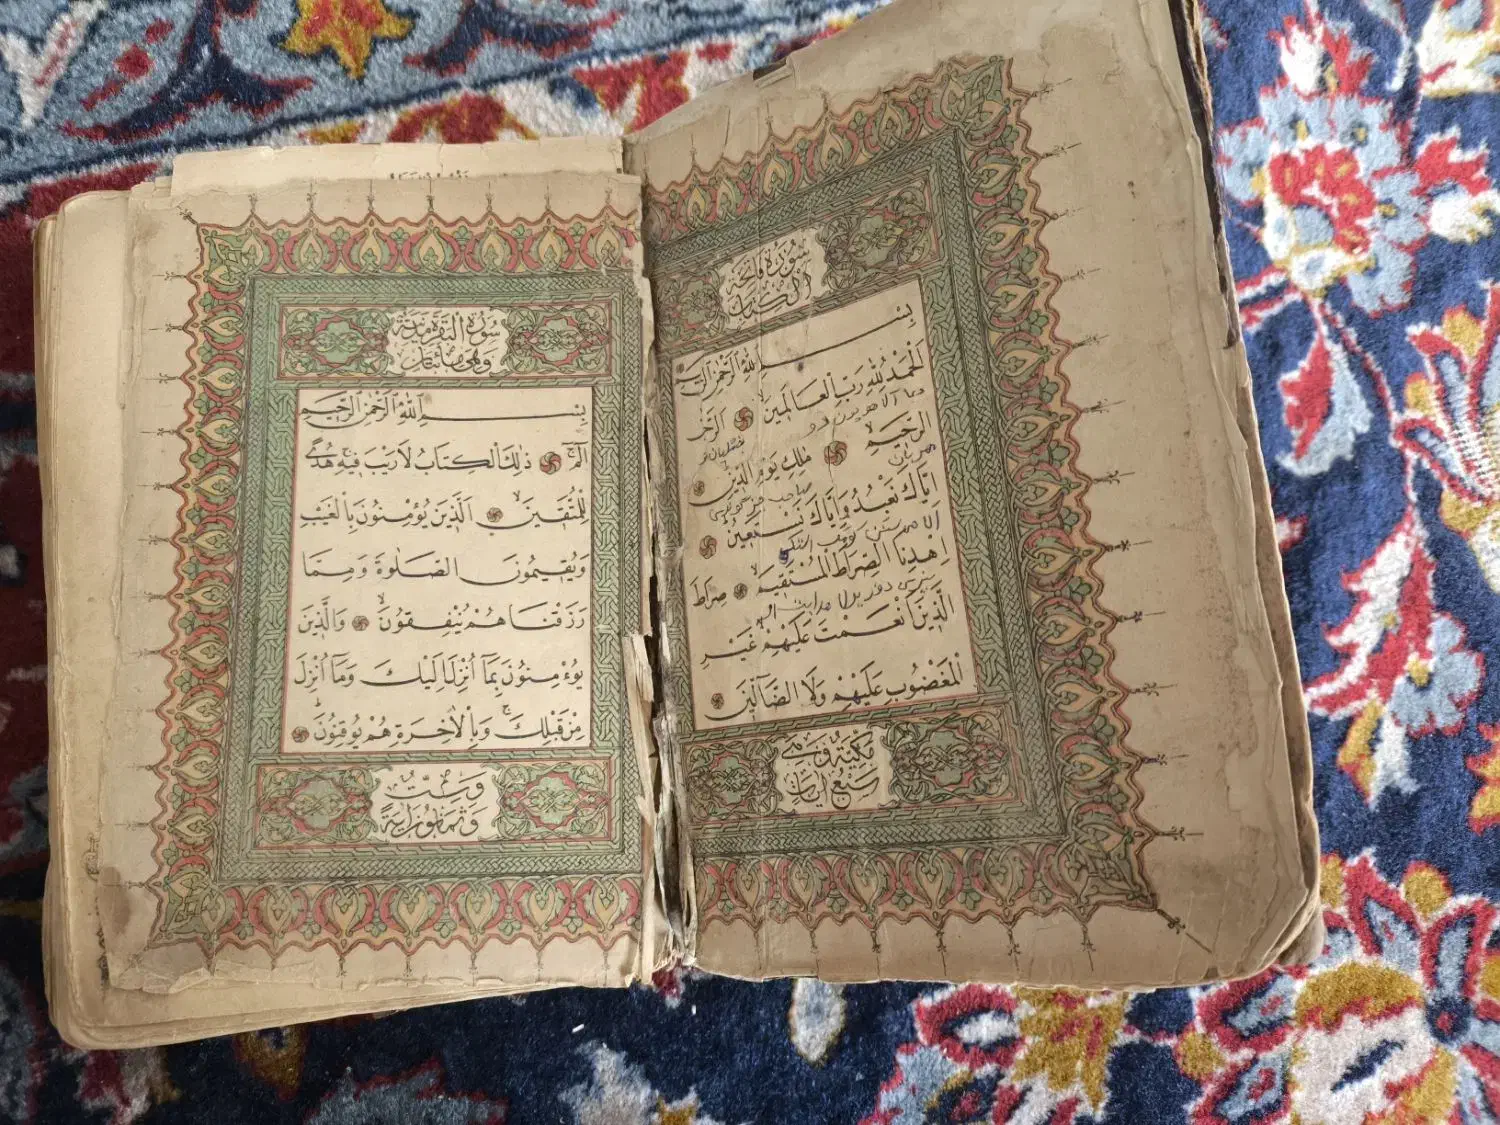 سُورَة فَاتِحَة
الْكِتَابِ
بِسْمِ اللّٰهِ الرَّحْمٰنِ الرَّحِيمِ
اَلْحَمْدُ لِلّٰهِ رَبِّ الْعَالَمِينَ اَلرَّحْمٰنِ
الرَّحِيمِ مٰلِكِ يَوْمِ الدِّينِ
مهربان
اِيَّاكَ نَعْبُدُ وَاِيَّاكَ نَسْتَعِينُ
اِهْدِنَا الصِّرَاطَ الْمُسْتَقِيمَ صِرَاطَ
الَّذِينَ اَنْعَمْتَ عَلَيْهِمْ غَيْرِ
الْمَغْضُوبِ عَلَيْهِمْ وَلَا الضَّالِّينَ
مَكِّيَّة وَهِيَ
سَبْعُ اٰيَاتٍ
سُورَة الْبَقَرَة مَدَنِيَّة
وَهِيَ مِائَتَانِ
بِسْمِ اللّٰهِ الرَّحْمٰنِ الرَّحِيمِ
الٓمٓ ذٰلِكَ الْكِتَابُ لَا رَيْبَ فِيهِ هُدًى
لِلْمُتَّقِينَ اَلَّذِينَ يُؤْمِنُونَ بِالْغَيْبِ
وَيُقِيمُونَ الصَّلٰوةَ وَمِمَّا
رَزَقْنَاهُمْ يُنْفِقُونَ وَالَّذِينَ
يُؤْمِنُونَ بِمَآ اُنْزِلَ اِلَيْكَ وَمَآ اُنْزِلَ
مِنْ قَبْلِكَ وَبِالْاٰخِرَةِ هُمْ يُوقِنُونَ
وَسِتٌّ
وَثَمَانُونَ اٰيَةً